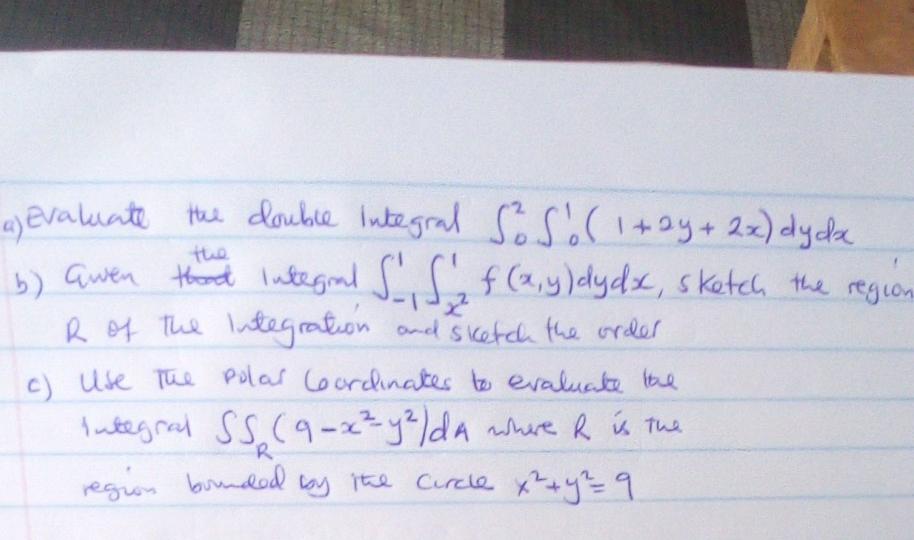 a) Evaluate the double Integral ∫₀² ∫₀¹ ( 1 + 2y + 2x) dy dx
b) Given the Integral ∫₋₁¹ ∫ₓ²¹ f (x, y) dy dx, sketch the region
R of the Integration and sketch the order
c) Use The Polar Coordinates to evaluate the
Integral ∫∫_R (9 - x² - y²) dA where R is The
region bounded by the Circle x² + y² = 9